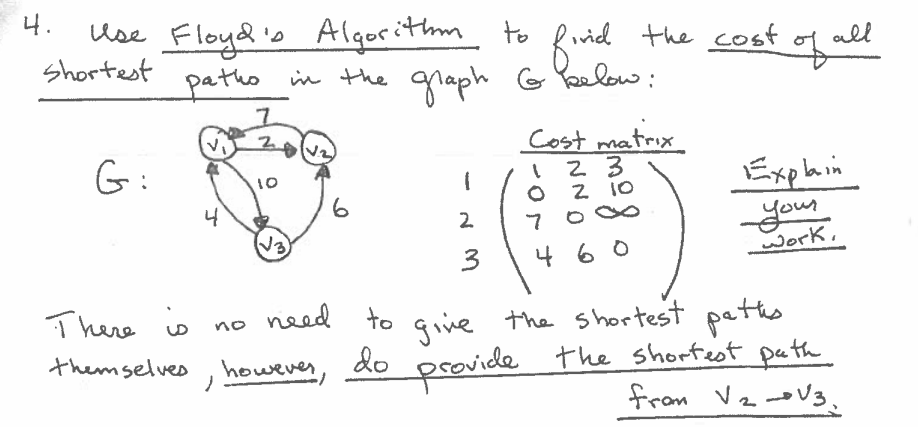 4. Use Floyd's Algorithm to find the cost of all
shortest paths in the graph G below:
G:
V1
V2
V3
7
2
10
4
6
Cost matrix
1 2 3
1 0 2 10
2 7 0 ∞
3 4 6 0
Explain
your
work.
There is no need to give the shortest paths
themselves, however, do provide the shortest path
from V2 → V3.